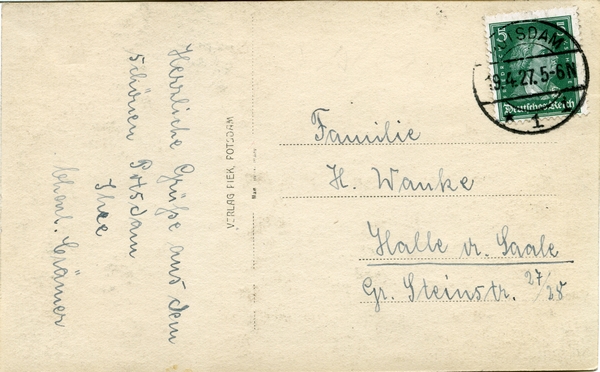 Herrliche Grüße aus dem
schönen Potsdam
Ihre
Crämer
VERLAG FIEK, POTSDAM
5
POTSDAM
19.4.27. 5-6N
Deutsches Reich
* 1
Familie
H. Wanke
Halle a. Saale
Gr. Steinstr. 27/28